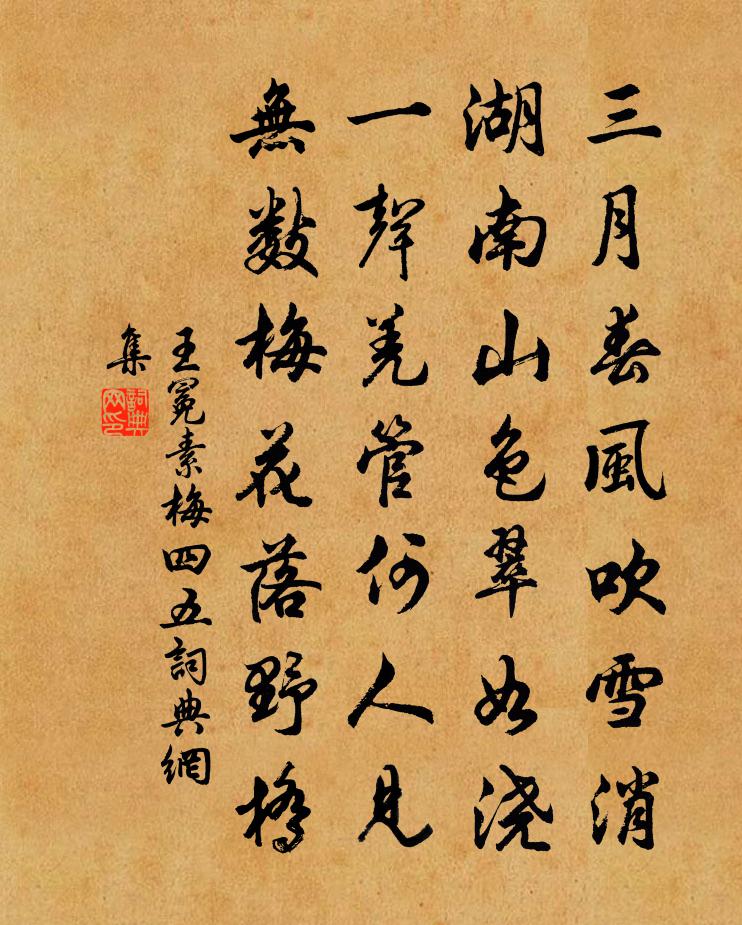 三月春風吹雪消
湖南山色翠如浇
一聲羌管何人見
無數梅花落野橋
王冕素梅四五詞典網
集
詞典
网印